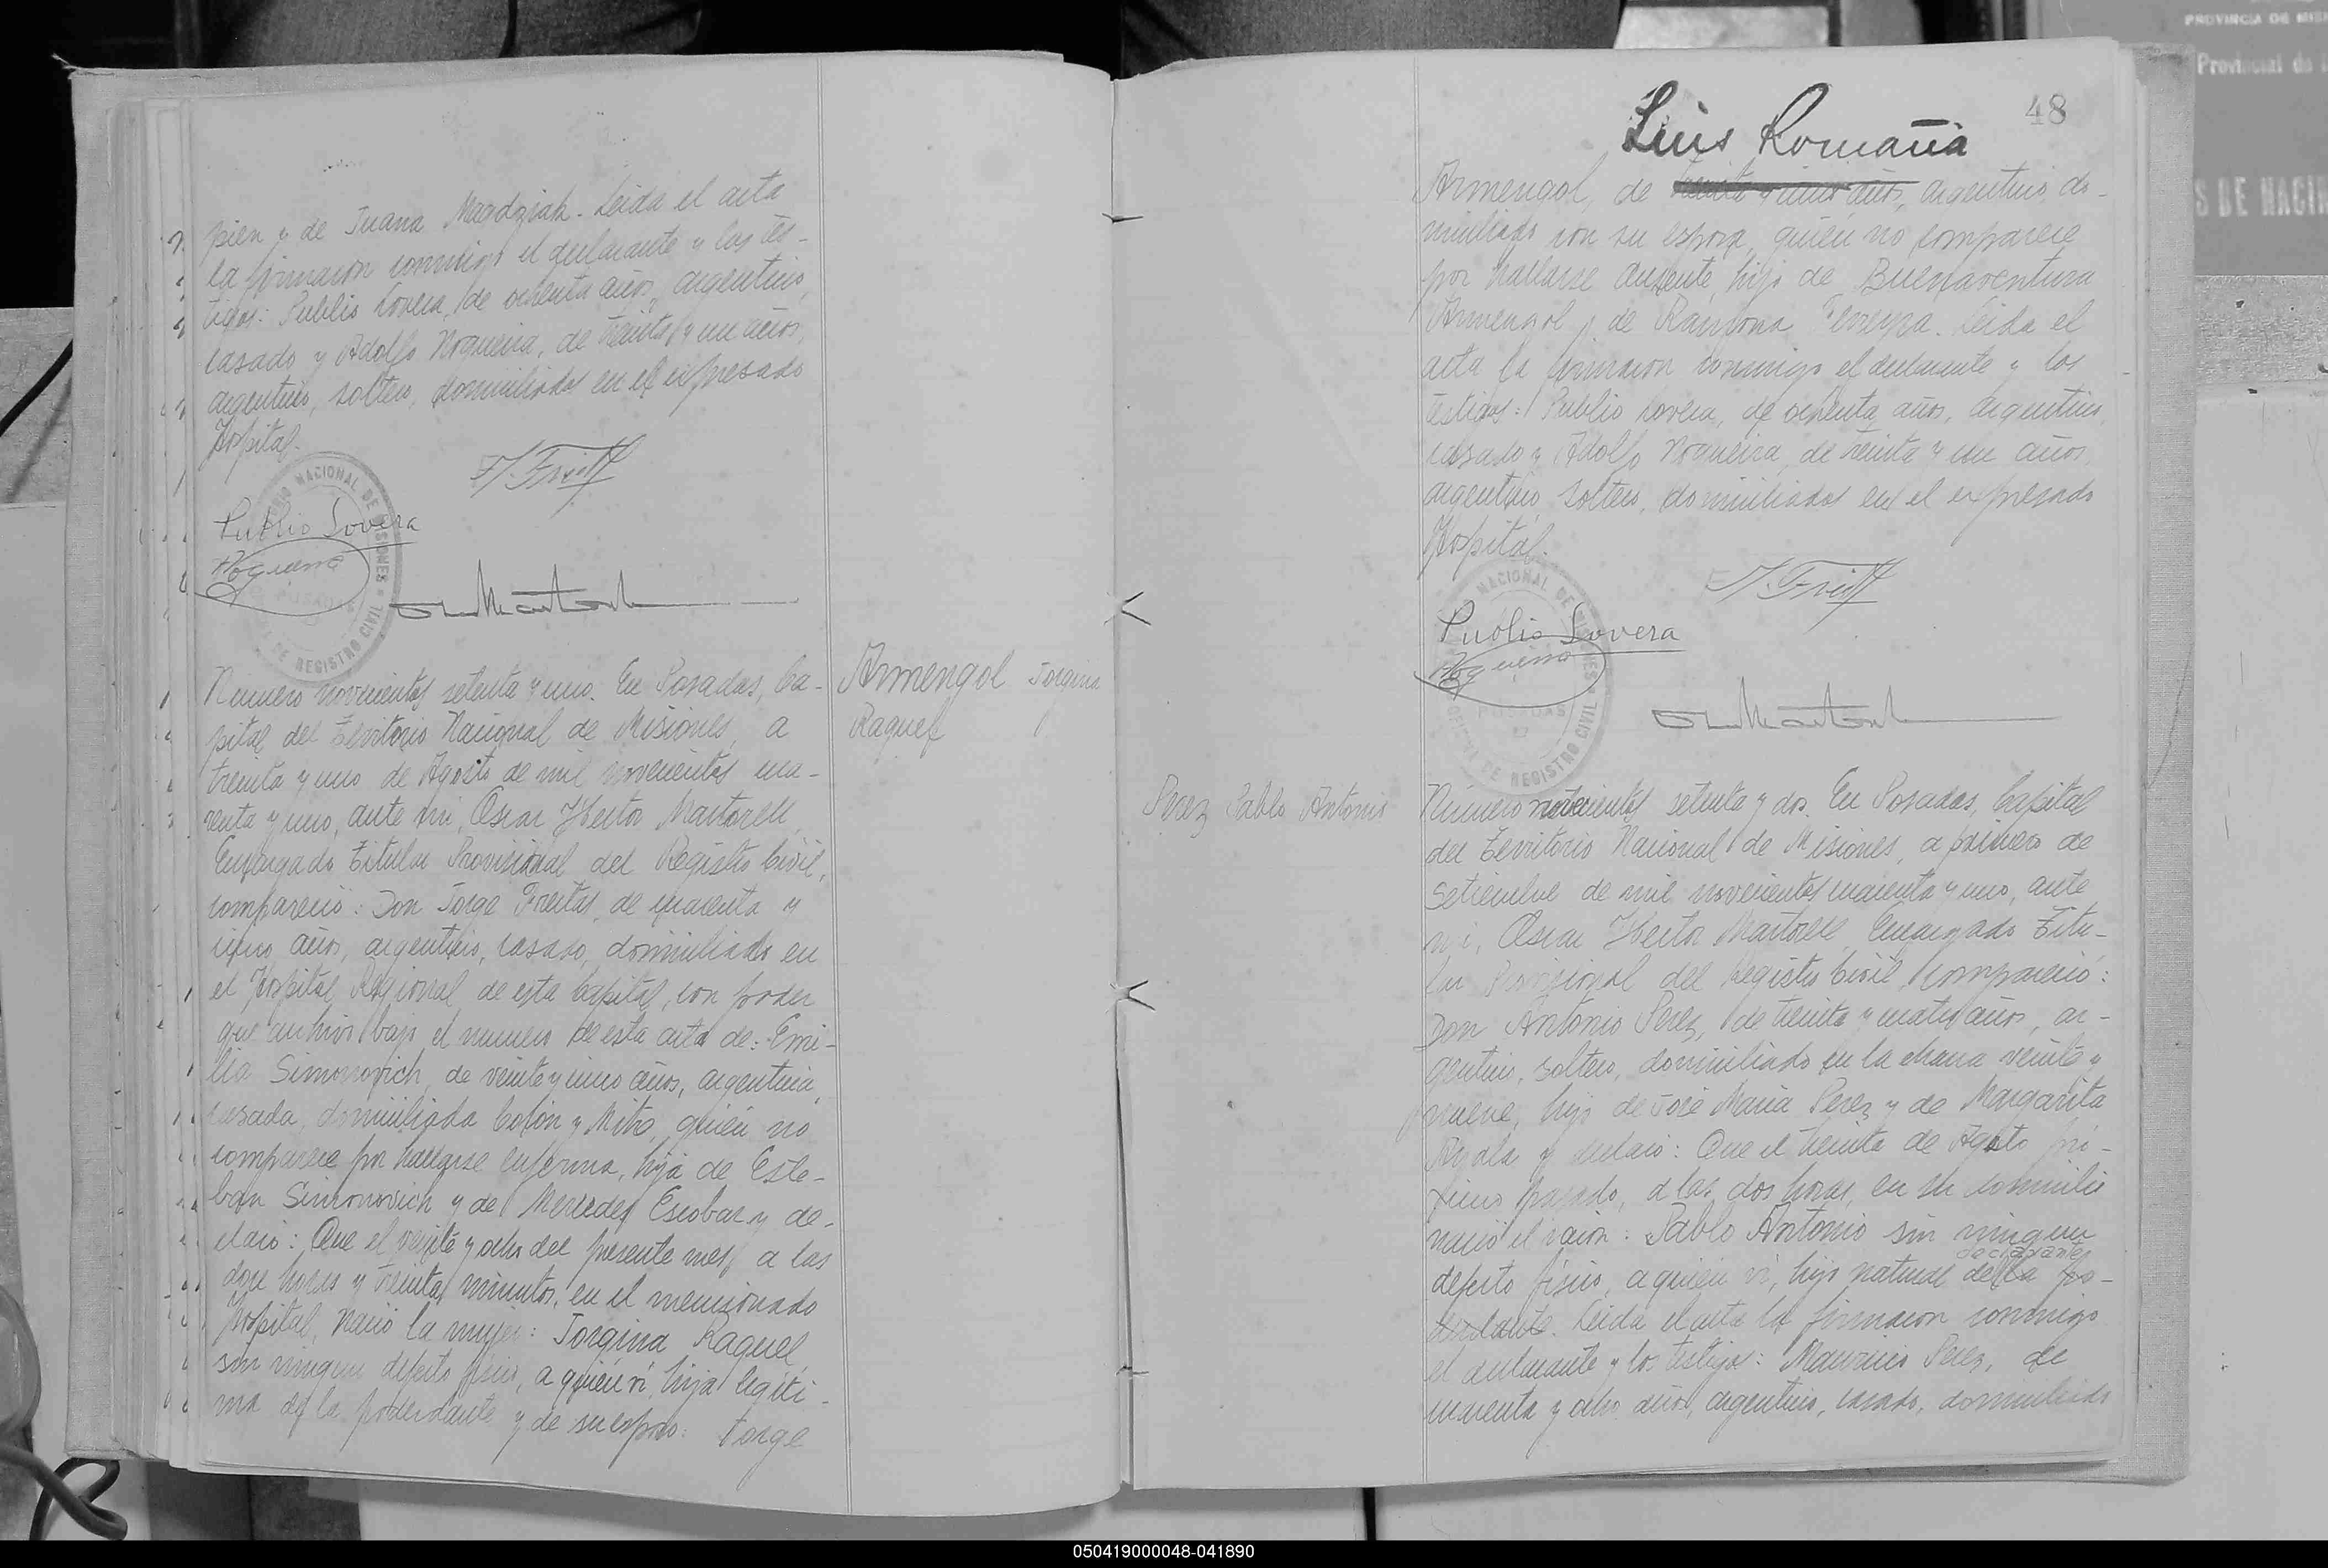 pien y de Juana Magdziak. Leida el acta
la firmaron conmigo el declarante y los tes-
tigos: Publio Lovera, de ochenta años, argentino,
casado y Adolfo Nogueira, de treinta y un años,
argentino, soltero, domiciliados en el expresado
Hospital.
Publio Lovera
Nogueira
Numero novecientos setenta y uno. En Posadas, Ca-
pital del Territorio Nacional de Misiones, a
treinta y uno de Agosto de mil novecientos cua-
renta y uno, ante mi, Oscar Hector Martorell,
Encargado Titular Provisional del Registro Civil,
compareció: Don Jorge Freitas, de cuarenta y
cinco años, argentino, casado, domiciliado en
el Hospital Regional de esta Capital, con poder
que archivo bajo el numero de esta acta de: Emi-
lia Simonovich, de veinte y cinco años, argentina,
casada, domiciliada Colón y Mitre, quién no
comparece por hallarse enferma, hija de Este-
ban Simonovich y de Mercedes Escobar y de-
claró: Que el veinte y ocho del presente mes, a las
doce horas y treinta minutos, en el mencionado
Hospital, nació la mujer: Jorgina Raquel
sin ningun defecto fisico, a quién vi, hija legiti-
ma de la poderdante y de su esposo: Jorge
Armengol Jorgina
Raquel
48
Luis Romaña
Armengol, de treinta y cinco años, argentino, do-
miciliado con su esposa, quién no comparece
por hallarse ausente, hijo de Buenaventura
Armengol y de Ramona Ferreyra. Leida el
acta la firmaron conmigo el declarante y los
testigos: Publio Lovera, de ochenta años, argentino,
casado y Adolfo Nogueira, de treinta y un años,
argentino, soltero, domiciliados en el expresado
Hospital.
Publio Lovera
Nogueira
Perez Pablo Antonio
Numero novecientos setenta y dos. En Posadas, Capital
del Territorio Nacional de Misiones, a primero de
Setiembre de mil novecientos cuarenta y uno, ante
mi, Oscar Hector Martorell, Encargado Titu-
lar Provisional del Registro Civil, compareció:
Don Antonio Perez, de treinta y cuatro años, ar-
gentino, soltero, domiciliado en la chacra veinte y
nueve, hijo de José Maria Perez y de Margarita
Ayala y declaró: Que el treinta de Agosto pró-
ximo pasado, a las dos horas, en su domicilio
nació el varón: Pablo Antonio sin ningun
declarante
defecto fisico, a quién vi, hijo natural de la po-
derdante. Leida el acta la firmaron conmigo
el declarante y los testigos: Mauricio Perez, de
cuarenta y ocho años, argentino, casado, domiciliado
PROVINCIA DE MISI
Provincial de
S DE NACIM
050419000048-041890